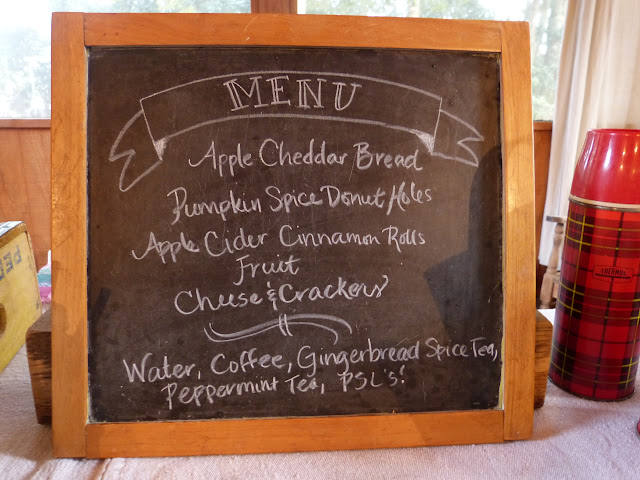 MENU
Apple Cheddar Bread
Pumpkin Spice Donut Holes
Apple Cider Cinnamon Rolls
Fruit
Cheese & Crackers
Water, Coffee, Gingerbread Spice Tea,
Peppermint Tea, PSL's!
THERMOS